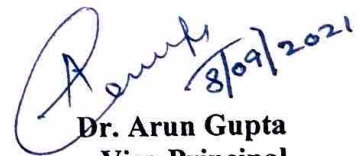 8/09/2021
Dr. Arun Gupta
Vice Principal